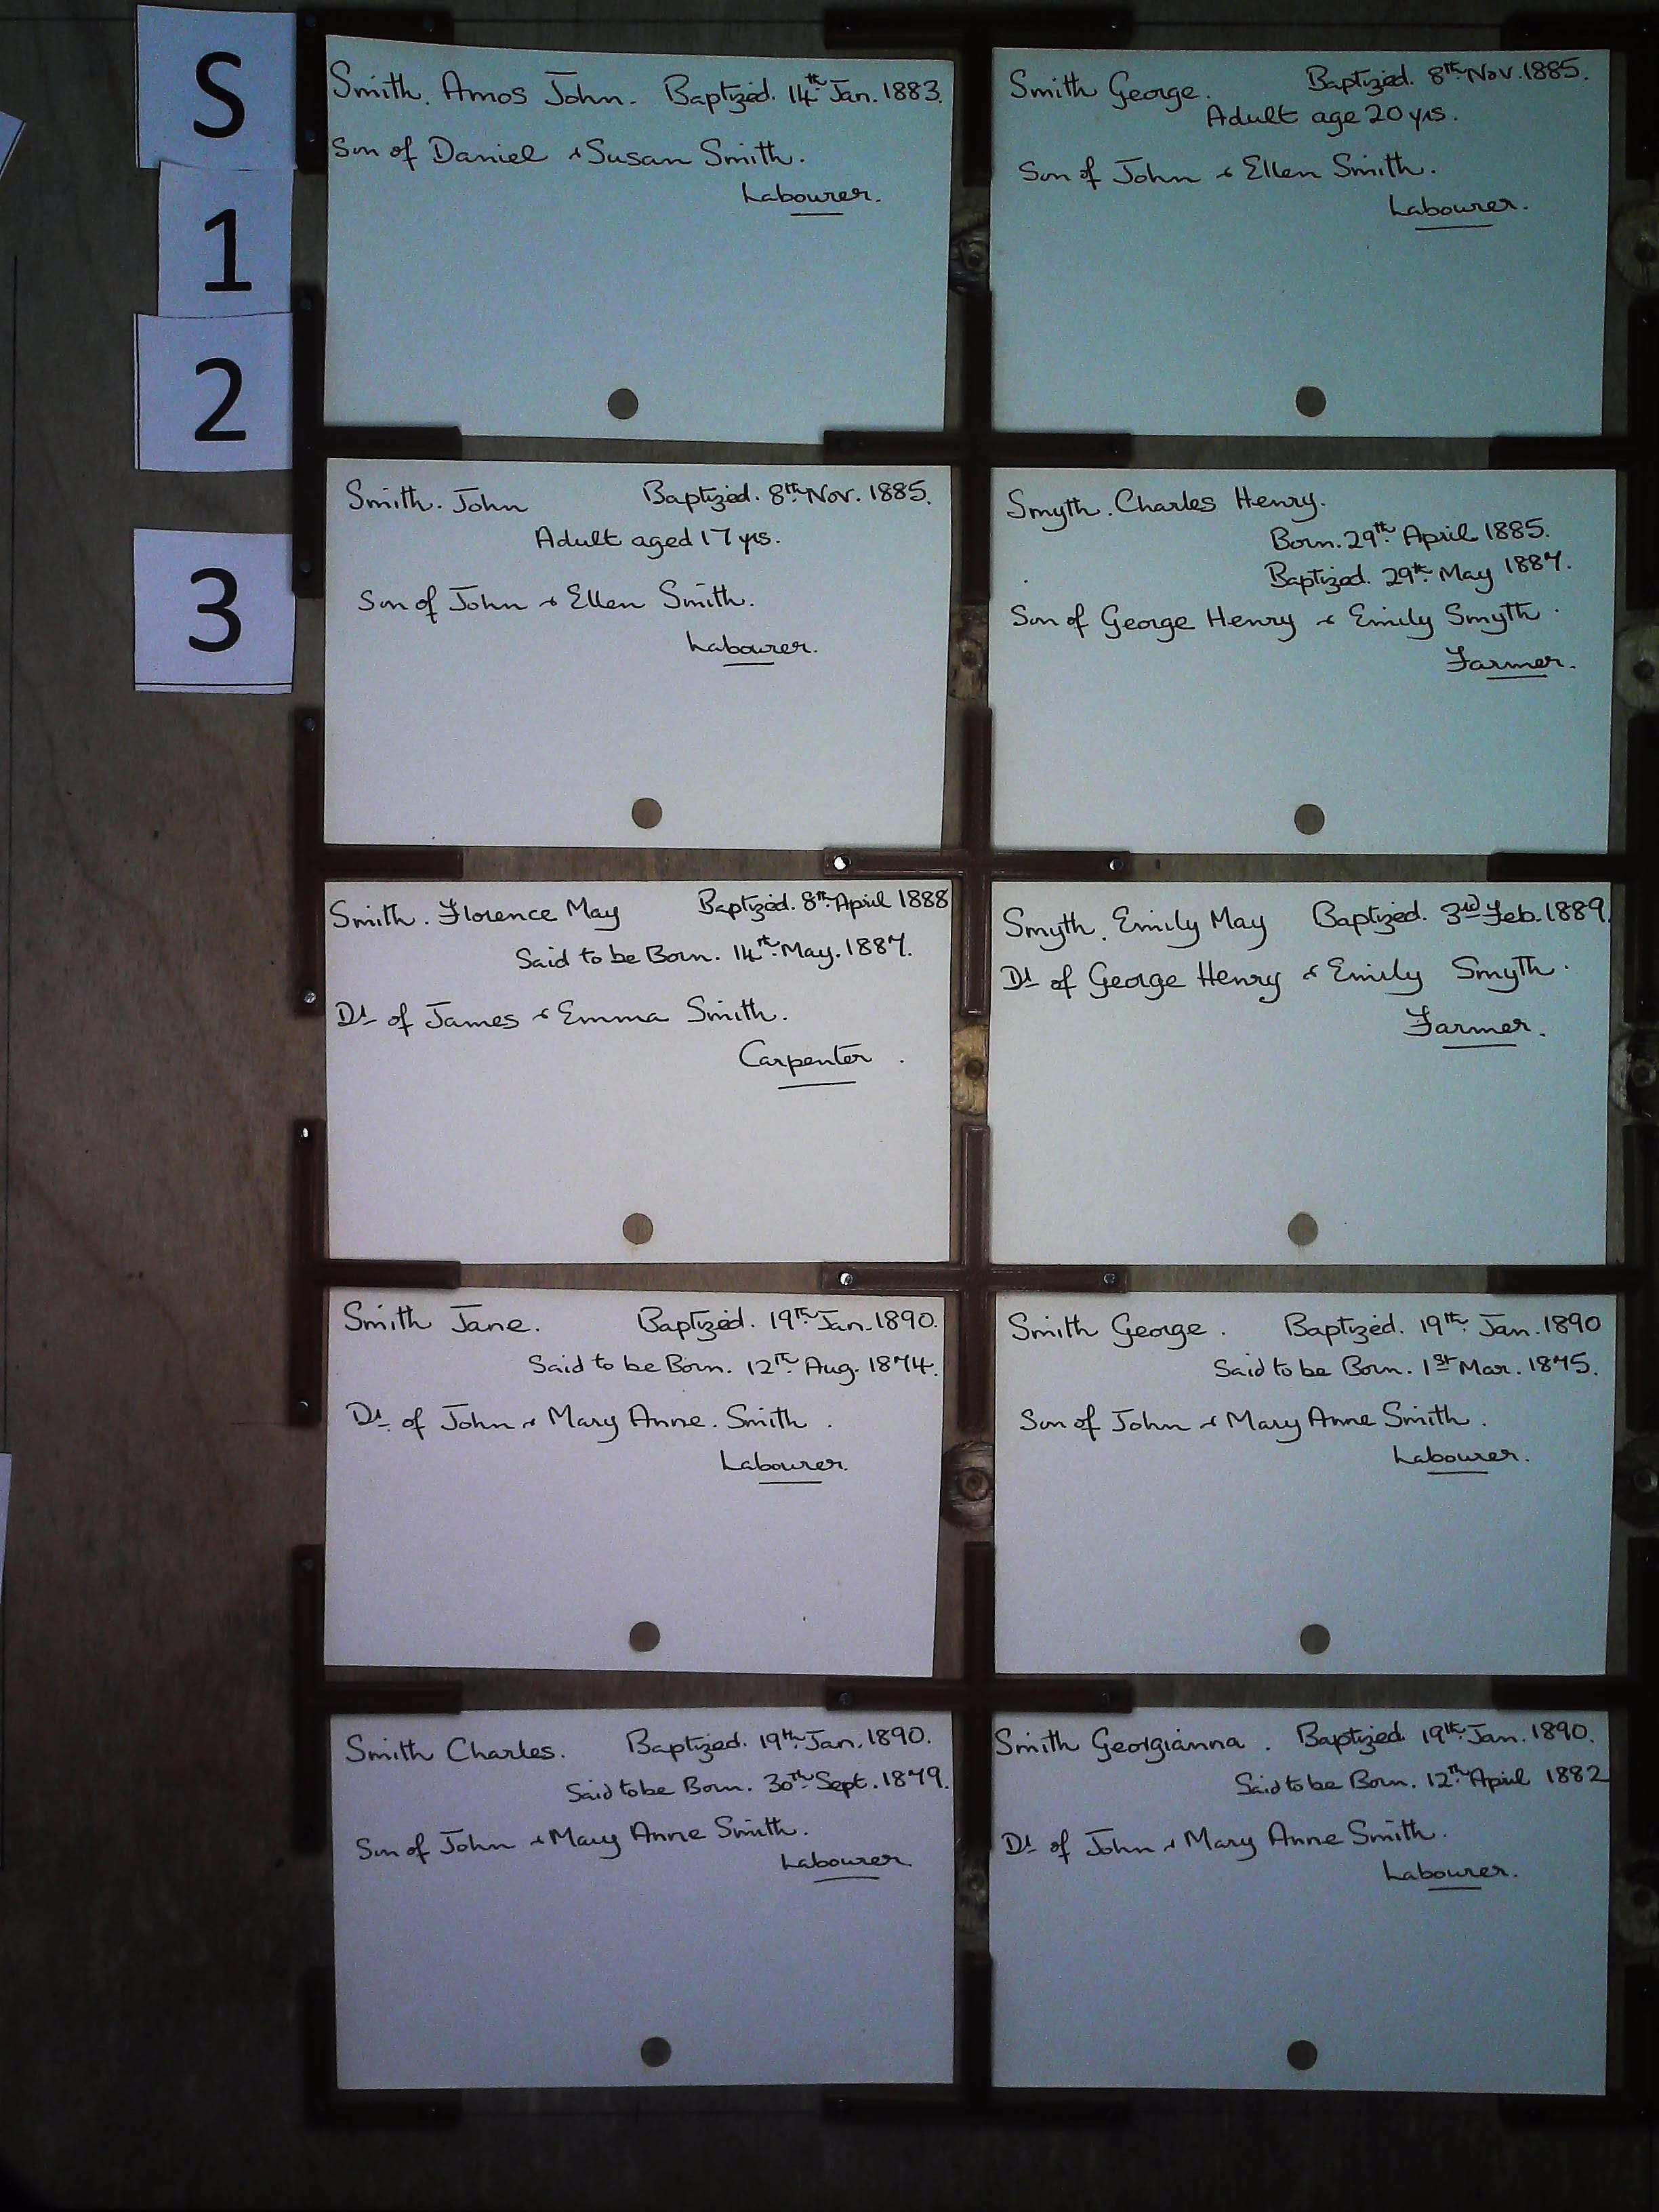 S
1
2
3
Smith. Amos John. Baptized. 14th Jan. 1883.
Son of Daniel & Susan Smith.
Labourer.
Smith George. Baptized. 8th Nov. 1885.
Adult age 20 yrs.
Son of John & Ellen Smith.
Labourer.
Smith. John Baptized. 8th Nov. 1885.
Adult aged 17 yrs.
Son of John & Ellen Smith.
Labourer.
Smyth. Charles Henry.
Born. 29th April 1885.
Baptized. 29th May 1887.
Son of George Henry & Emily Smyth.
Farmer.
Smith. Florence May Baptized. 8th April 1888
Said to be Born. 14th May. 1887.
Dr of James & Emma Smith.
Carpenter.
Smyth. Emily May Baptized. 3rd Feb. 1889.
Dr of George Henry & Emily Smyth.
Farmer.
Smith Jane. Baptized. 19th Jan. 1890.
Said to be Born. 12th Aug. 1874.
Dr. of John & Mary Anne. Smith.
Labourer.
Smith George. Baptized. 19th Jan. 1890
Said to be Born. 1st Mar. 1875.
Son of John & Mary Anne Smith.
Labourer.
Smith Charles. Baptized. 19th Jan. 1890.
Said to be Born. 30th Sept. 1879.
Son of John & Mary Anne Smith.
Labourer.
Smith Georgianna. Baptized. 19th Jan. 1890.
Said to be Born. 12th April 1882
Dr of John & Mary Anne Smith.
Labourer.